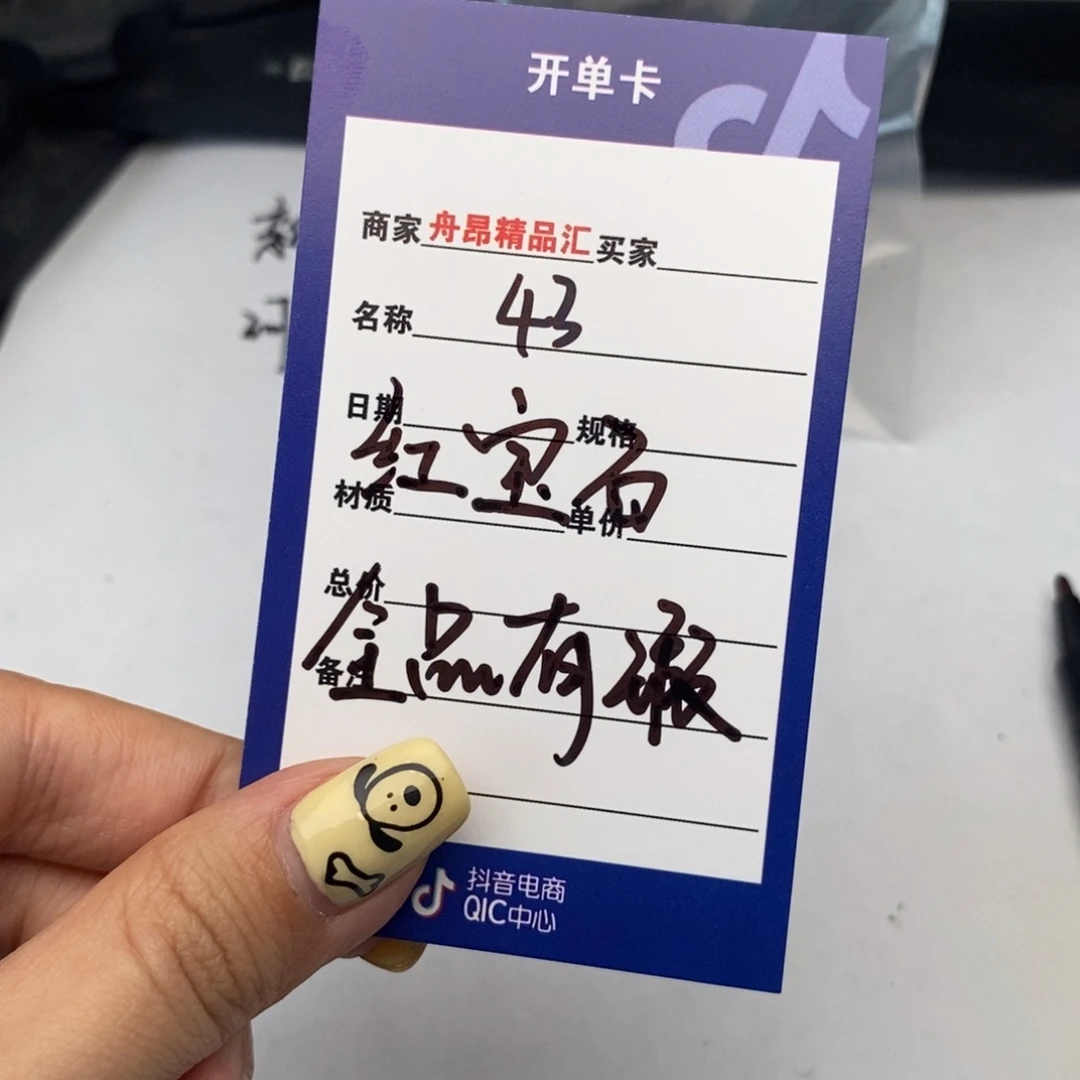 开单卡
商家 舟昂精品汇 买家
名称 43
日期 规格
红宝石
材质 单价
总价
全品有微
备注
抖音电商
QIC中心